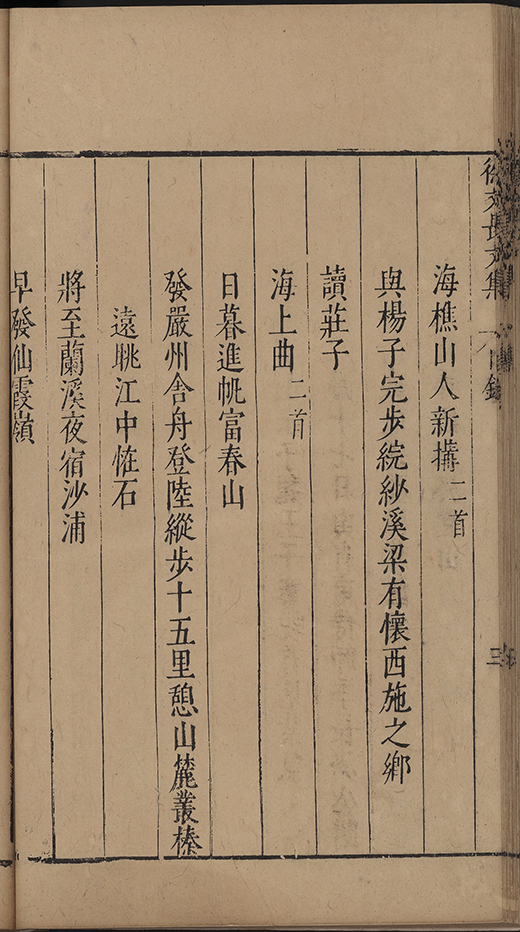 徐文長文集 目錄 三
海樵山人新搆二首
與楊子完步綄紗溪梁有懷西施之鄉
讀莊子
海上曲二首
日暮進帆富春山
發嚴州舍舟登陸縱步十五里憩山麓叢榛
遠眺江中恠石
將至蘭溪夜宿沙浦
早發仙霞嶺